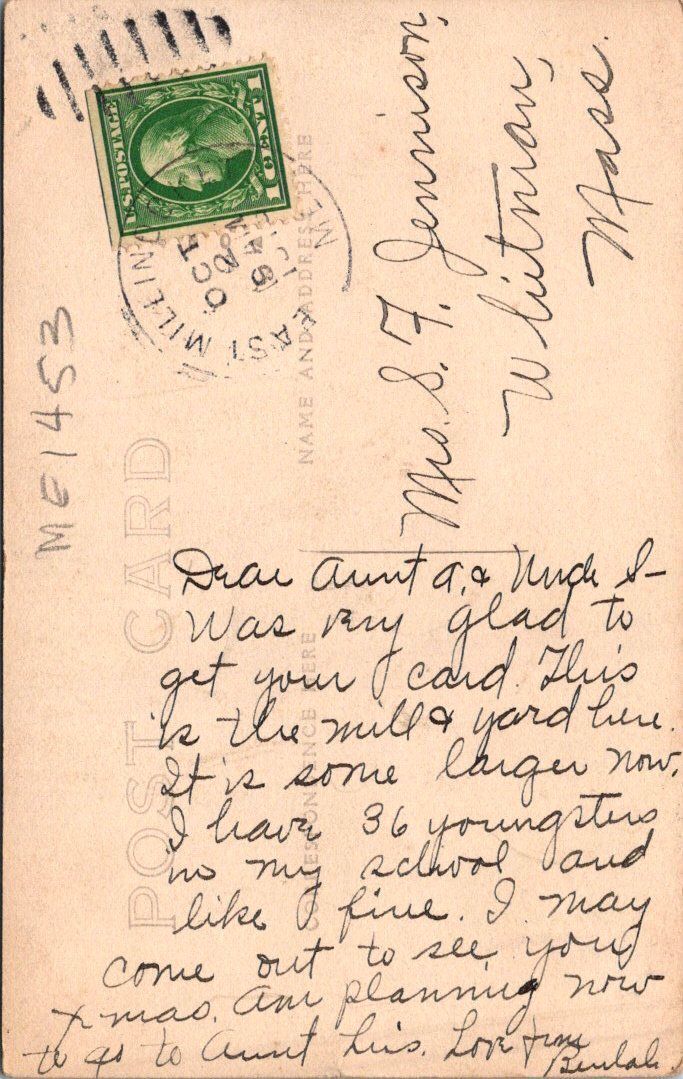 U.S. POSTAGE
1 CENT 1
EAST MILLINOCKET
OCT
2
ME.
ME1453
POST CARD
NAME AND ADDRESS HERE
CORRESPONDENCE HERE
Mrs. S. F. Jennison,
Whitman,
Mass.
Dear Aunt A. & Uncle S-
Was very glad to
get your card. This
is the mill & yard here.
It is some larger now.
I have 36 youngsters
in my school and
like fine. I may
come out to see you
Xmas. Am planning now
to go to Aunt Lu's. Love from
Beulah